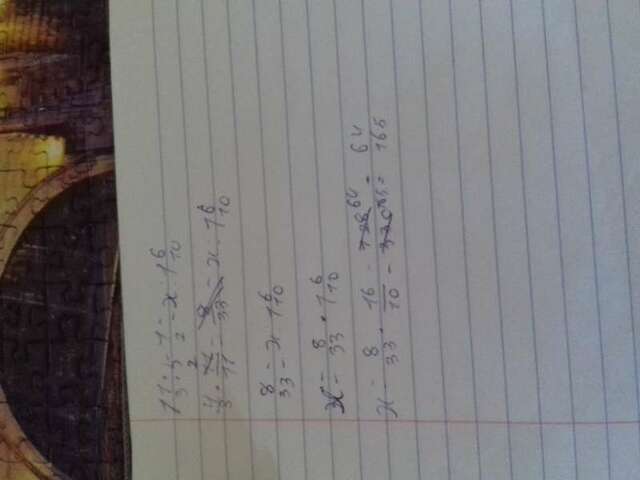 1 1/3 : 5 1/2 = x : 1 6/10
4/3 · 2/11 = 8/33 = x : 1 6/10
8/33 = x : 1 6/10
x = 8/33 · 1 6/10
x = 8/33 · 16/10 = 128/330 64/165 = 64/165